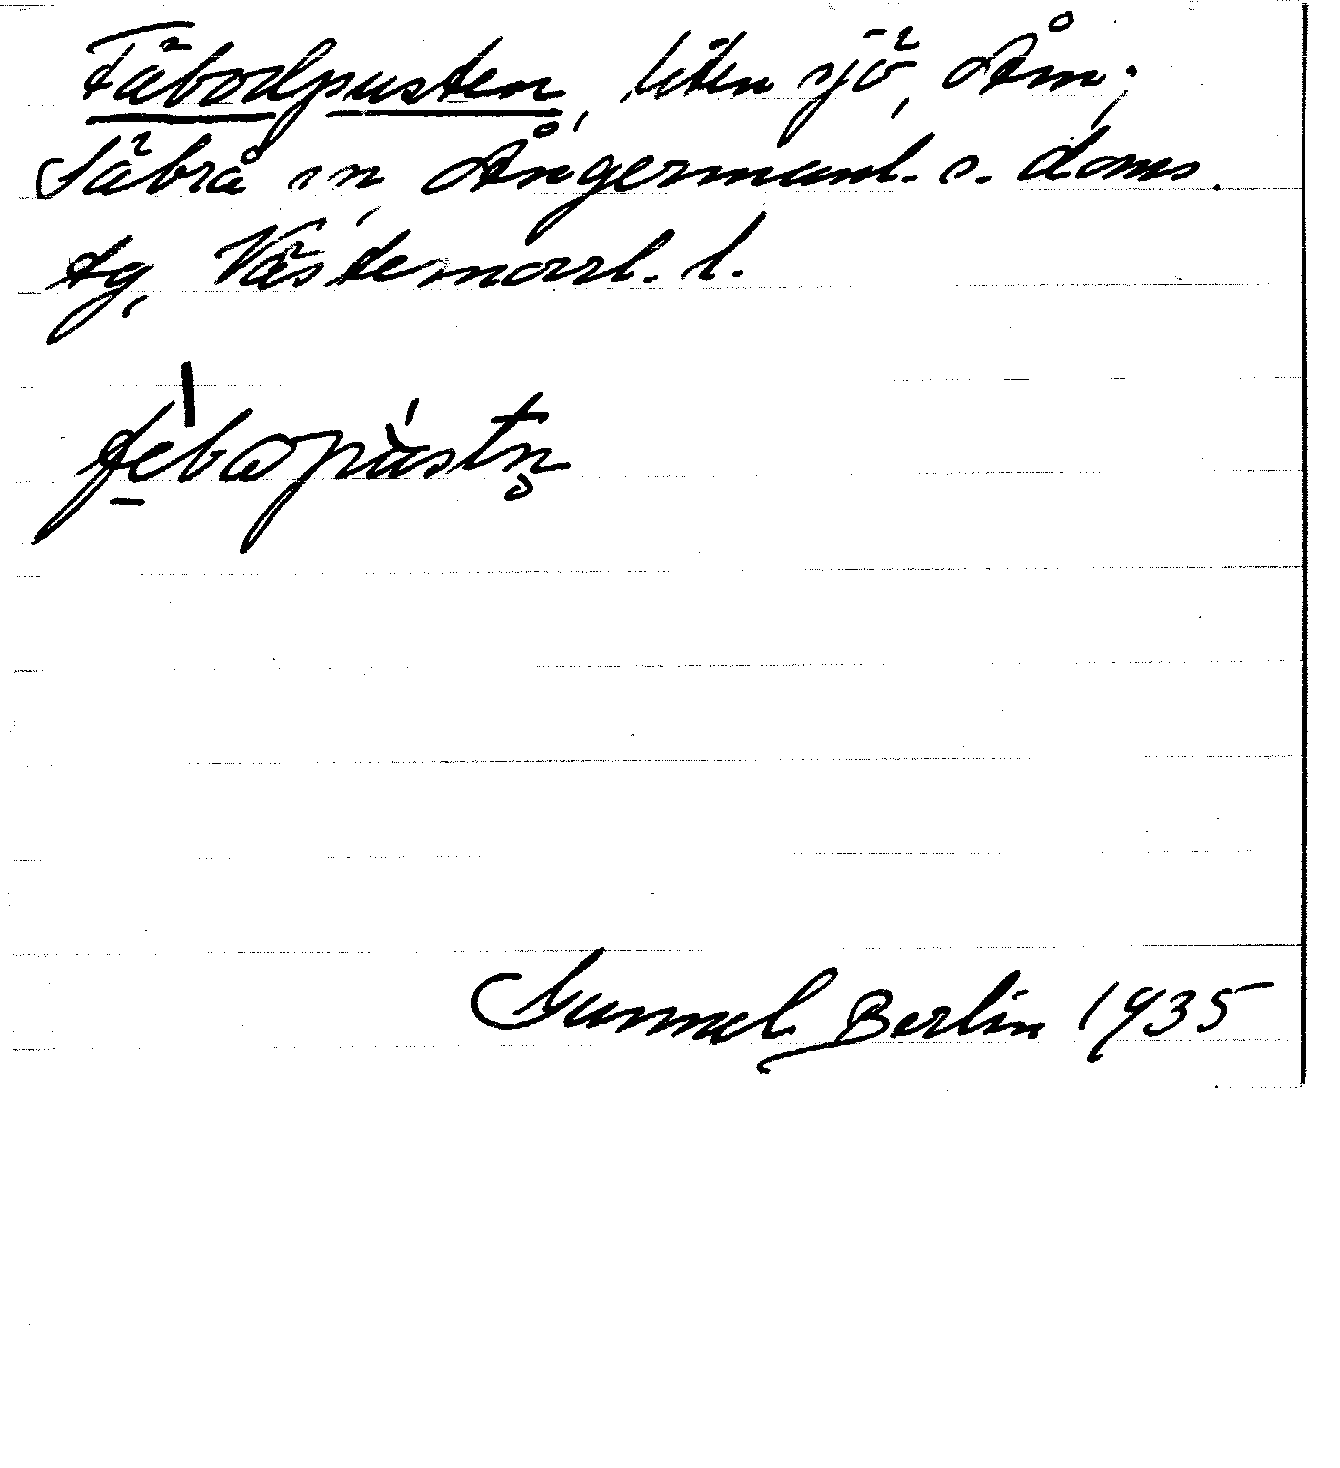 Fäbodpusten, liten sjö, Åm,
Säbrå sn, Ångermanl. s. doms.
tg, Västernorrl. l.
Gunnel Berlin 1935